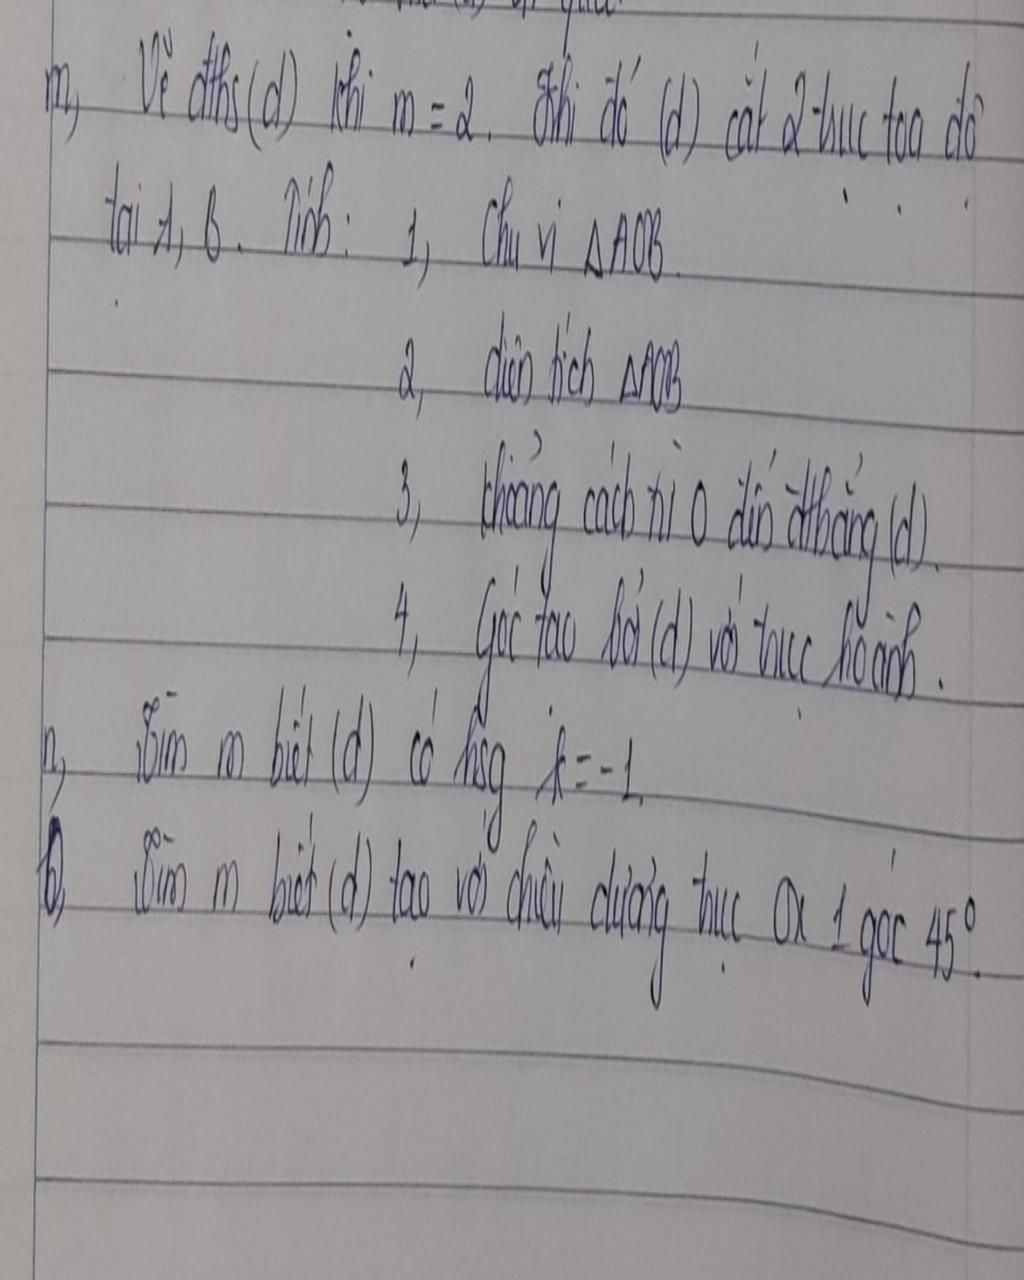 m, Vẽ đths (d) khi m = 2. Khi đó (d) cắt 2 trục tọa độ
tại A, B. Tính: 1, Chu vi ΔAOB.
2, diện tích ΔAOB
3, khoảng cách từ O đến đthẳng (d).
4, Góc tạo bởi (d) với trục hoành.
n, Tìm m biết (d) có hsg k = -1.
o, Tìm m biết (d) tạo với chiều dương trục Ox 1 góc 45°.